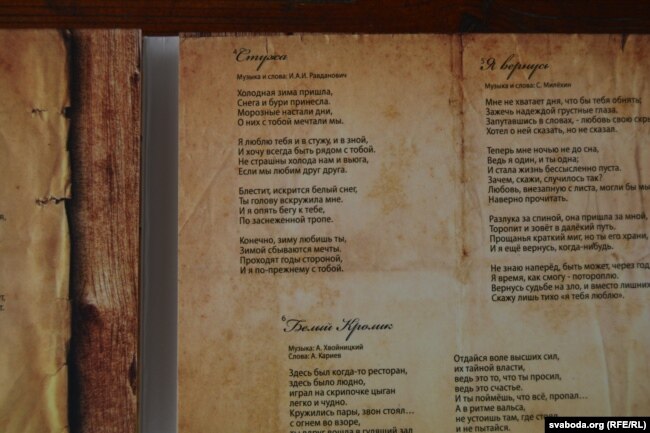 4 Стужа
Музыка и слова: И.А.И. Равданович
Холодная зима пришла,
Снега и бури принесла.
Морозные настали дни,
О них с тобой мечтали мы.
Я люблю тебя и в стужу, и в зной,
И хочу всегда быть рядом с тобой.
Не страшны холода нам и вьюга,
Если мы любим друг друга.
Блестит, искрится белый снег,
Ты голову вскружила мне.
И я опять бегу к тебе,
По заснеженной тропе.
Конечно, зиму любишь ты,
Зимой сбываются мечты.
Проходят годы стороной,
И я по-прежнему с тобой.
5 Я вернусь
Музыка и слова: С. Милёхин
Мне не хватает дня, что бы тебя обнять;
Зажечь надеждой грустные глаза.
Запутавшись в словах, - любовь свою
Хотел о ней сказать, но не сказал.
Теперь мне ночью не до сна,
Ведь я один, и ты одна;
И стала жизнь бессмысленно пуста.
Зачем, скажи, случилось так?
Любовь, внезапную с листа, могли бы мы
Наверно прочитать.
Разлука за спиной, она пришла за мной,
Торопит и зовёт в далёкий путь.
Прощанья краткий миг, но ты его храни,
И я ещё вернусь, когда-нибудь.
Не знаю наперёд, быть может, через год
Я время, как смогу - потороплю.
Вернусь судьбе на зло, и вместо лишних
Скажу лишь тихо «я тебя люблю».
6 Белый Кролик
Музыка: А. Хвойницкий
Слова: А. Кариев
Здесь был когда-то ресторан,
здесь было людно,
играл на скрипочке цыган
легко и чудно.
Кружились пары, звон стоял…
с огнем во взоре,
ты вдруг вошла в гудящий зал
Отдайся воле высших сил,
их тайной власти,
ведь это то, что ты просил,
ведь это счастье.
И ты поймёшь, что всё, пропал…
А в ритме вальса,
не устоишь там, где стоял
и не пытайся.
svaboda.org (RFE/RL)